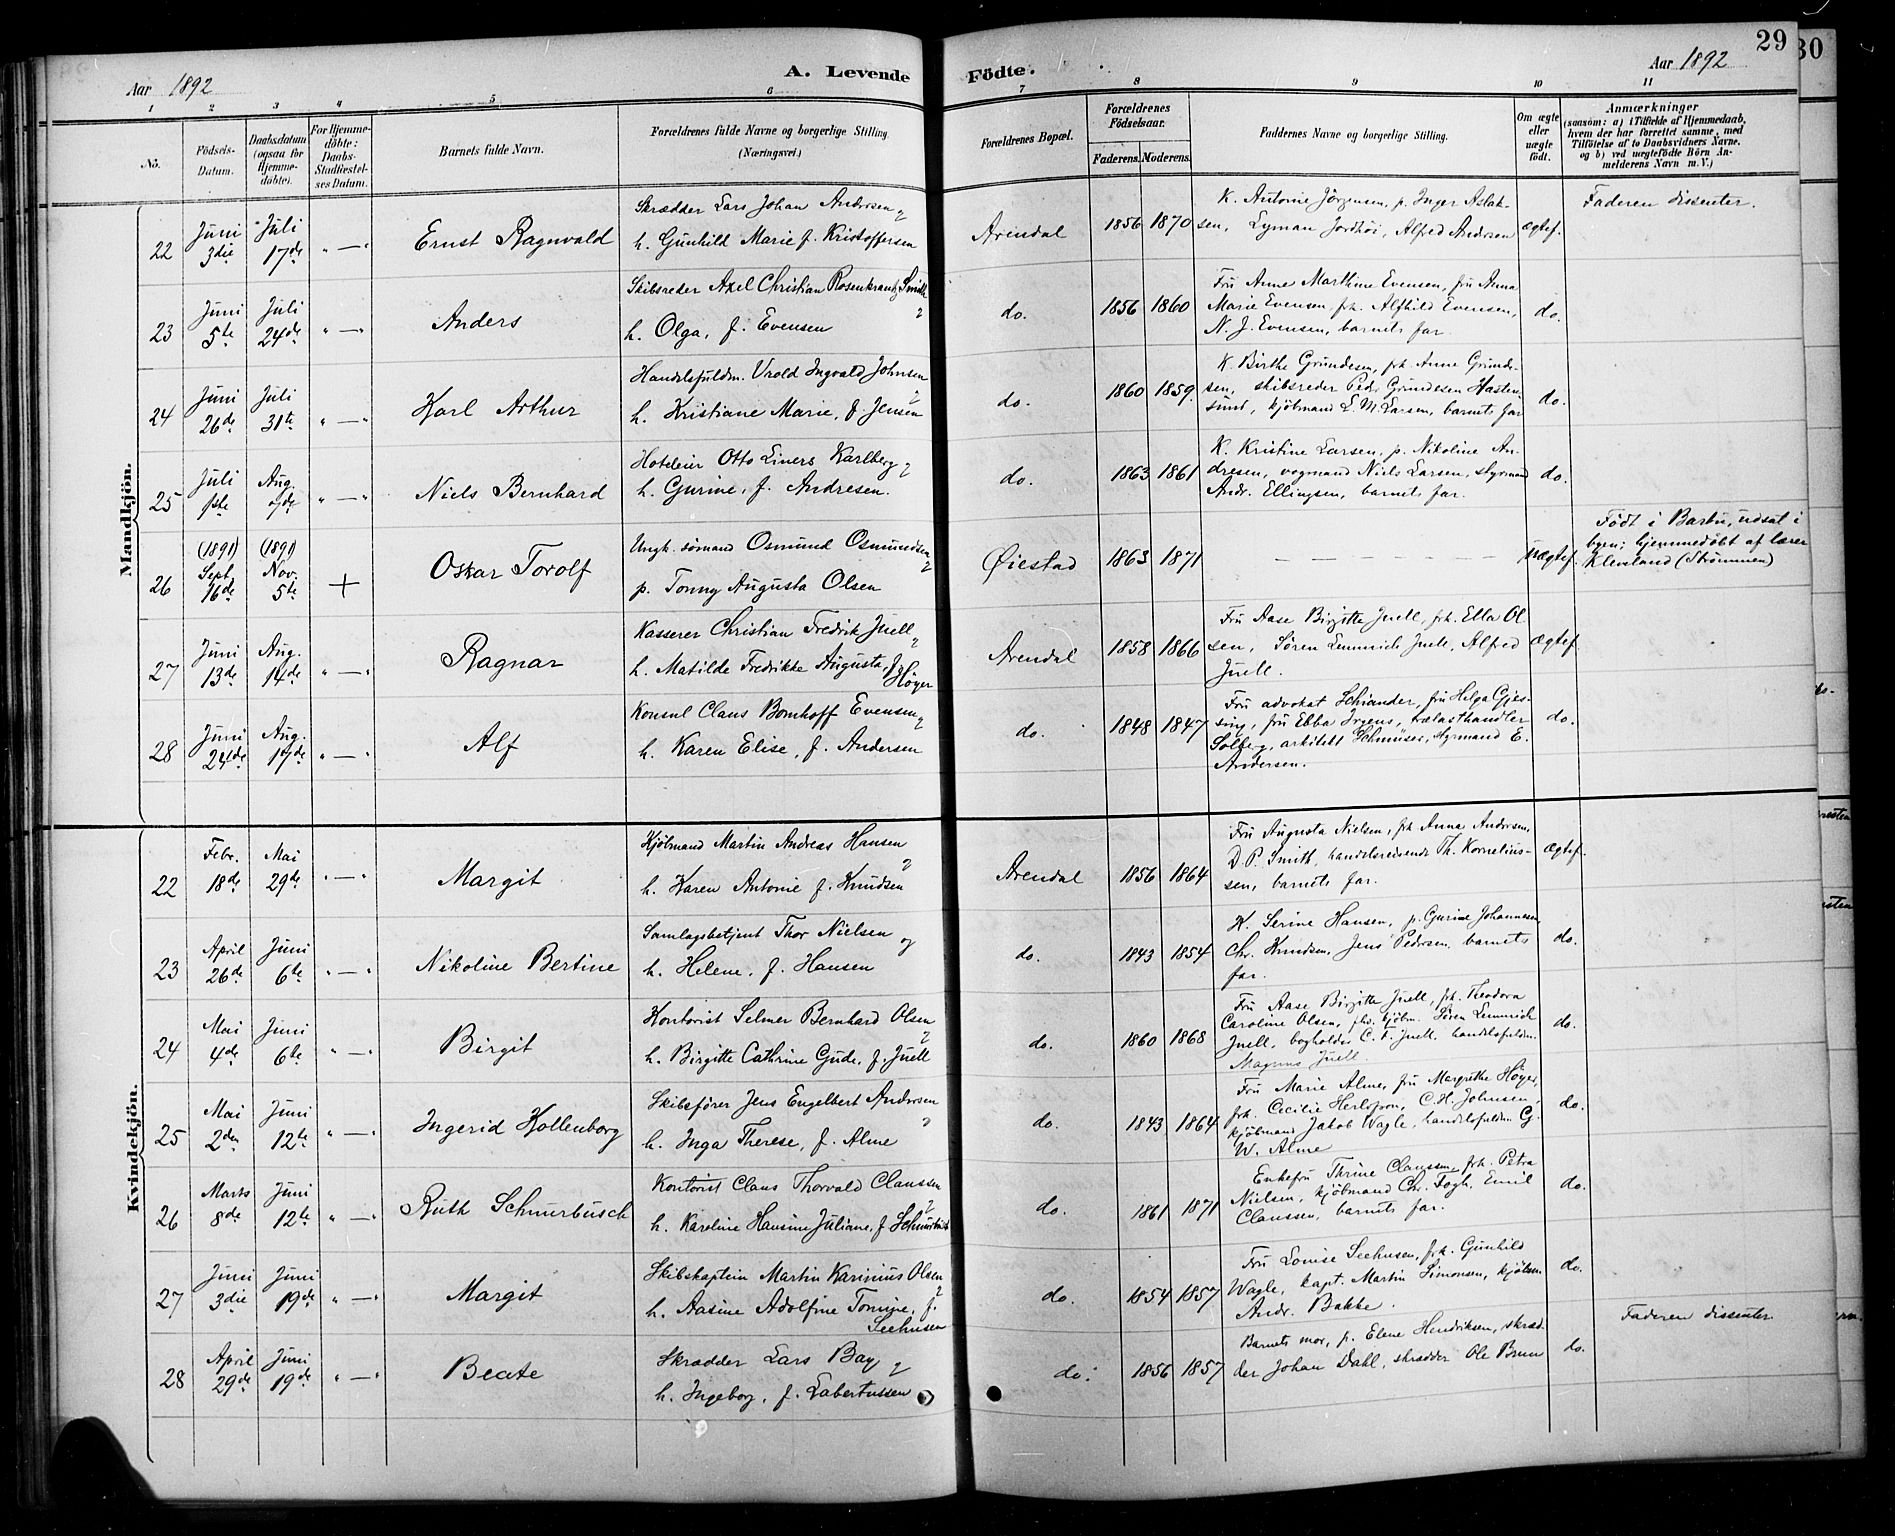 29
30
Aar 1892
A. Levende Födte.
Aar 1892
1 2 3 4 5 6 7 8 9 10 11
No.
Födsels-Datum.
Daabsdatum (ogsaa for Hjemmedöbte).
For Hjemmedöbte: Daabs-Stadfæstelses Datum.
Barnets fulde Navn.
Forældrenes fulde Navne og borgerlige Stilling.
(Næringsvei.)
Forældrenes Bopæl.
Forældrenes Födselsaar.
Faderens. Moderens.
Faddernes Navne og borgerlige Stilling.
Om ægte eller uægte födt.
Anmærkninger
(saasom: a) i Tilfælde af Hjemmedaab, hvem der har forrettet samme, med Tilföielse af to Daabsvidners Navne, og b) ved uægtefödte Börn Anmelderens Navn m. V.)
Mandkjön.
22 Juni 3die Juli 17de " — " Ernst Ragnvald
Skrædder Lars Johan Andersen og
h. Gunhild Marie f. Kristoffersen
Arendal 1856 1870
K. Antonie Jörgensen, p. Inger Aslak-
sen, Lyman Jordhöi, Alfred Andersen
Ægtef.
Faderen dissenter.
23 Juni 5te Juli 24de " — " Anders
Skibsreder Axel Christian Rosenkrantz Smith og
h. Olga, f. Evensen
do. 1856 1860
Fru Anne Marthine Evensen, fru Anna
Marie Evensen, frk. Alfhild Evensen,
N. J. Evensen, barnets far.
do.
24 Juni 26de Juli 31te " — " Karl Arthur
Handelsfuldm. Vrold Ingvald Johnsen og
h. Kristiane Marie, f. Jensen
do. 1860 1859.
K. Birthe Grundesen, frk. Anne Grunde-
sen, skibsreder Peder Grundesen Hasten-
sund, kjöbmand L. M. Larsen, barnets far
do.
25 Juli 1ste Aug. 7de " — " Niels Bernhard
Hoteleier Otto Einers Karlberg og
h. Gurine, f. Andresen.
do. 1863 1861
K. Kristine Larsen, p. Nikoline An-
dresen, vogmand Niels Larsen, styrmand
Andr. Ellingsen, barnets far.
do.
26 (1891) Sept. 16de (1891) Nov. 5te + Oskar Torolf
Ungk. sömand Osmund Osmundsen og
p. Tonny Augusta Olsen
Öiestad 1863 1871 — — — — —
Uægtef.
Födt i Barbu, udsat i
byen; hjemmedöbt af lærer
Klevsland (Strömmen)
27 Juni 13de Aug. 14de " — " Ragnar
Kasserer Christian Fredrik Juell og
h. Matilde Fredrikke Augusta, f. Höyer
Arendal 1858 1866
Fru Aase Birgitte Juell, frk. Ella Ol
sen, Sören Lemmich Juell, Alfred
Juell.
Ægtef.
28 Juni 24de Aug. 17de " — " Alf
Konsul Claus Bomhoff Evensen og
h. Karen Elise, f. Andersen
do. 1848 1847
Fru advokat Schiander, fru Helga Gjes-
sing, fru Ebba Irgens, trælasthandler
Solberg, arkitekt Schmüser, styrmand E.
Andersen.
do.
Kvindekjön.
22 Febr. 18de Mai 29de " — " Margit
Kjöbmand Martin Andreas Hansen og
h. Karen Antonie f. Knudsen
Arendal 1856 1864
Fru Augusta Nielsen, frk. Anna Andersen,
D. P. Smith, handelsreisende Th. Kornelius-
sen, barnets far.
Ægtef.
23 April 26de Juni 6te " — " Nikoline Bertine
Samlagsbetjent Thor Nielsen og
h. Helene, f. Hansen
do. 1843 1854
K. Serine Hansen, p. Gurine Johannesen
Chr. Knudsen, Jens Pedersen, barnets
far.
do.
24 Mai 4de Juni 6te " — " Birgit
Kontorist Selmer Bernhard Olsen og
h. Birgitte Cathrine Gude, f. Juell
do. 1860 1868
Fru Aase Birgitte Juell, frk. Theodora
Caroline Olsen, fhv. kjöbm. Sören Lemmich
Juell, bogholder C. F. Juell, handelsfuldm.
Magnus Juell.
do.
25 Mai 2den Juni 12te " — " Ingerid Kollenborg
Skibsförer Jens Engelbert Andersen og
h. Inga Therese, f. Alme
do. 1843 1864
Fru Marie Alme, fru Margrethe Höyer,
frk. Cecilie Herlofson, C. H. Johnsen,
kjöbmand Jakob Vagle, handelsfuldm. G.
W. Alme
do.
26 Marts 8de Juni 12te " — " Ruth Schnurbusch
Kontorist Claus Thorvald Claussen og
h. Karoline Hansine Juliane, f. Schnurbusch
do. 1861 1871
Enkefru Thrine Claussen, frk. Petra
Nielsen, kjöbmand Chr. Fogh, Emil
Claussen, barnets far.
do.
27 Juni 3die Juni 19de " — " Margit
Skibskaptein Martin Karinius Olsen og
h. Aasine Adolfine Tomine, f. Seehusen
do. 1854 1857
Fru Louise Seehusen, frk. Gunhild
Vagle, kapt. Martin Simonsen, kjöbm.
Andr. Bakke.
do.
28 April 29de Juni 19de " — " Beate
Skrædder Lars Bay og
h. Ingeborg, f. Labertussen
do. 1856 1857
Barnets mor, p. Elene Hendriksen, skræd-
der Johan Dahl, skrædder Ole Bruun
do.
Faderen dissenter